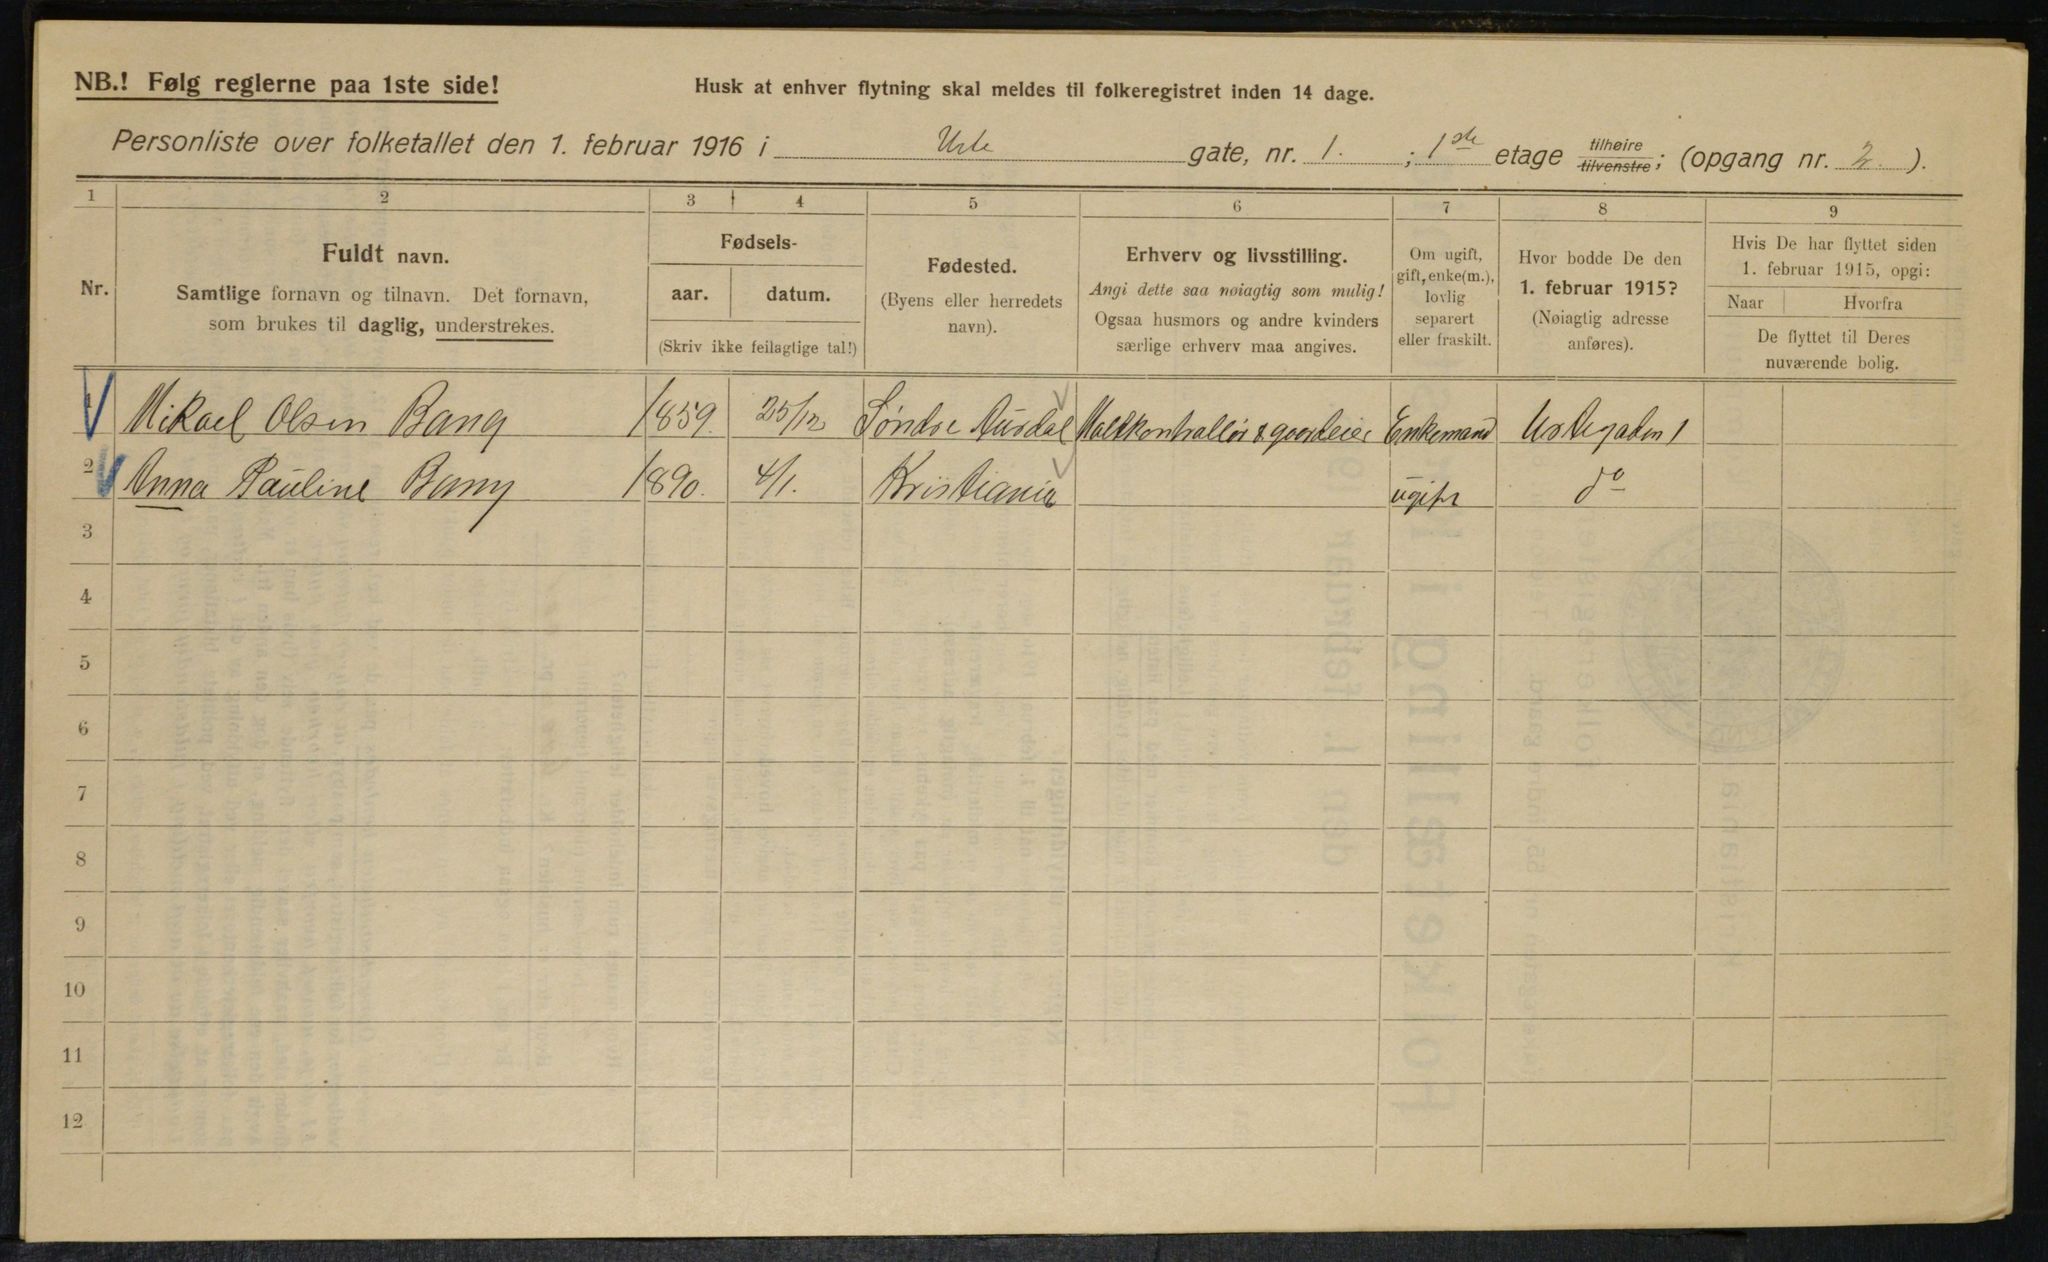 NB.! Følg reglerne paa 1ste side!
Husk at enhver flytning skal meldes til folkeregistret inden 14 dage.
Personliste over folketallet den 1. februar 1916 i Urte gate, nr. 1. ; 1ste etage tilhøire tilvenstre; (opgang nr. 2. ).
1 2 3 4 5 6 7 8 9
Nr.
Fuldt navn.
Samtlige fornavn og tilnavn. Det fornavn,
som brukes til daglig, understrekes.
Fødsels-
aar. datum.
(Skriv ikke feilagtige tal!)
Fødested.
(Byens eller herredets
navn).
Erhverv og livsstilling.
Angi dette saa nøiagtig som mulig!
Ogsaa husmors og andre kvinders
særlige erhverv maa angives.
Om ugift,
gift, enke(m.),
lovlig
separert
eller fraskilt.
Hvor bodde De den
1. februar 1915?
(Nøiagtig adresse
anføres).
Hvis De har flyttet siden
1. februar 1915, opgi:
Naar Hvorfra
De flyttet til Deres
nuværende bolig.
1 Mikael Olsen Bang 1859. 25/12 Søndre Aurdal Maltkontrollør & gaardeier Enkemand Urtegaden 1
2 Anna Pauline Bang 1890. 4/1. Kristiania ugift do
3
4
5
6
7
8
9
10
11
12